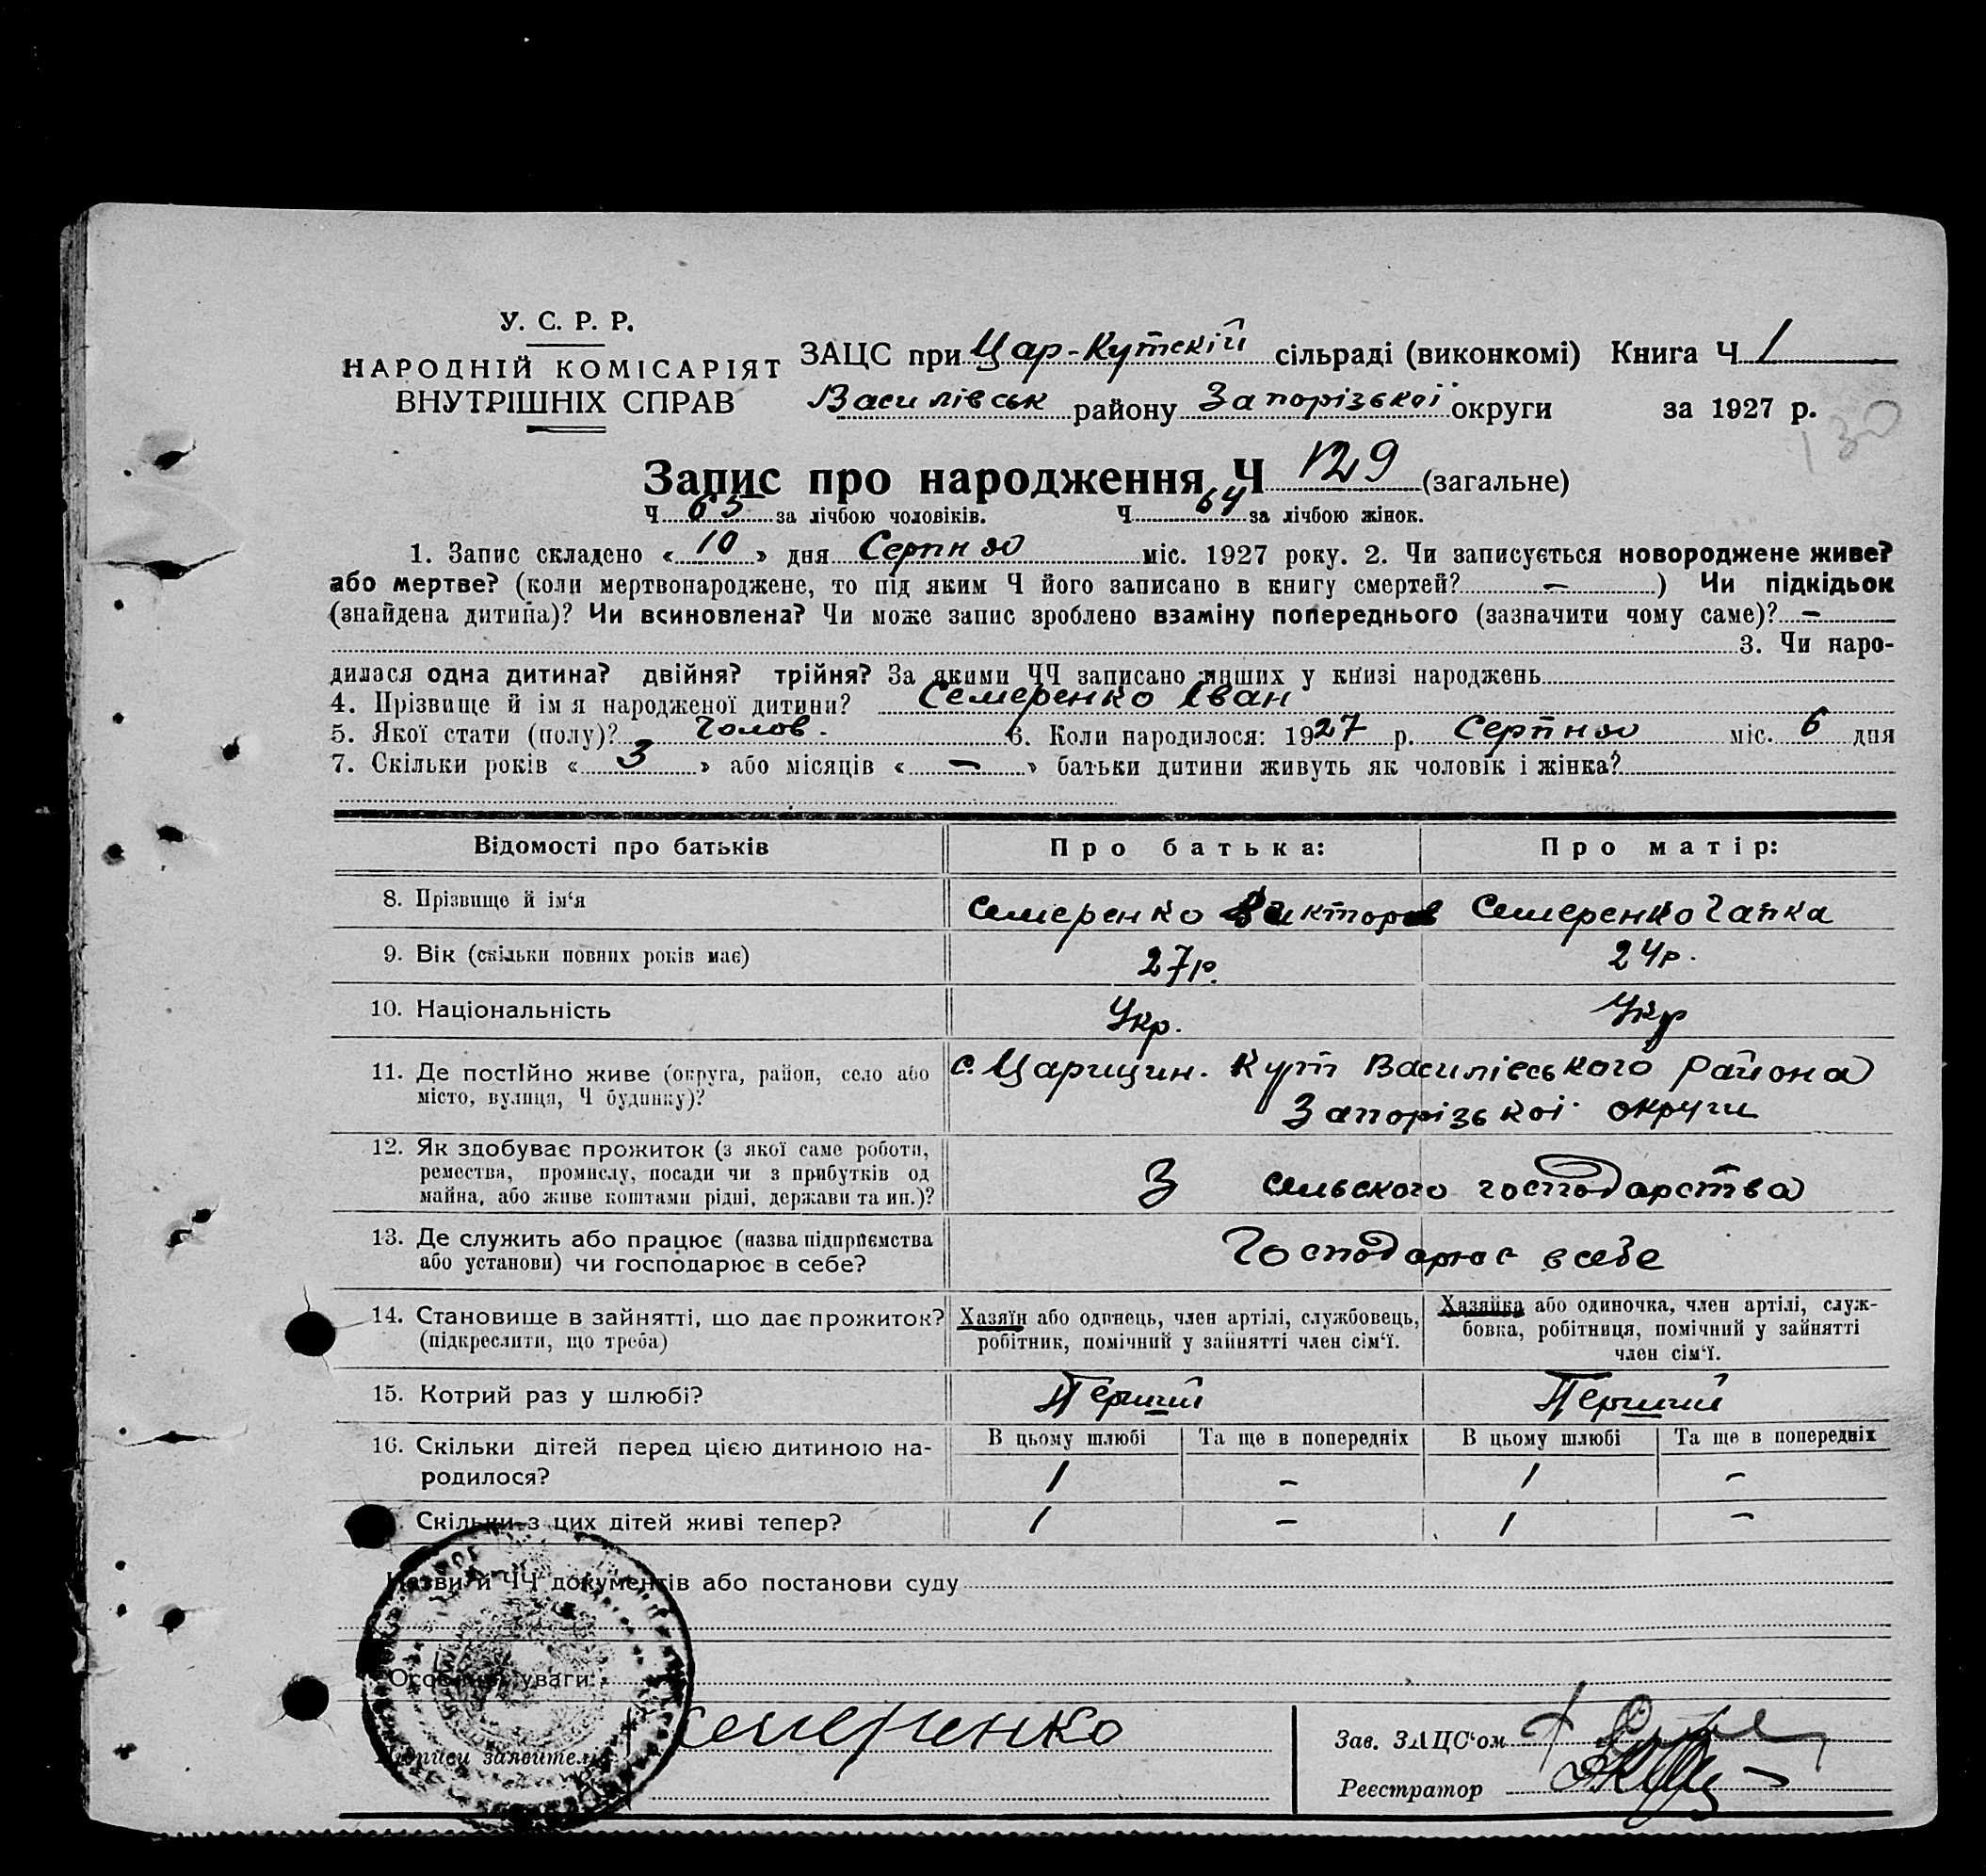 У. С. Р. Р.
НАРОДНІЙ КОМІСАРІЯТ
ВНУТРІШНІХ СПРАВ
ЗАЦС при Цар-Кутскій сільраді (виконкомі) Книга Ч 1
Василівськ району Запорізької округи за 1927 р.
130
Запис про народження Ч 129 (загальне)
Ч 65 за лічбою чоловіків. Ч 64 за лічбою жінок.
1. Запис складено « 10 » дня Серпня міс. 1927 року. 2. Чи записується новороджене живе?
або мертве? (коли мертвонароджене, то під яким Ч його записано в книгу смертей? – ) Чи підкідьок
(знайдена дитина)? Чи всиновлена? Чи може запис зроблено взаміну попереднього (зазначити чому саме)? –
3. Чи наро-
дилася одна дитина? двійня? трійня? За якими ЧЧ записано инших у книзі народжень
4. Прізвище й ім я народженої дитини? Семеренко Іван
5. Якої стати (полу)? Чолов. 6. Коли народилося: 1927 р. Серпня міс. 6 дня
7. Скільки років « 3 » або місяців « – » батьки дитини живуть як чоловік і жінка?
Відомості про батьків Про батька: Про матір:
8. Прізвище й ім‘я Семеренко Виктор Семеренко Гапка
9. Вік (скільки повних років має) 27р. 24р.
10. Національність Укр. Укр
11. Де постійно живе (округа, район, село або с. Царицин. Кут Василівського района
місто, вулиця, Ч будинку)? Запорізької округи
12. Як здобуває прожиток (з якої саме роботи,
ремества, промислу, посади чи з прибутків од З сельского господарства
майна, або живе коштами рідні, держави та ин.)?
13. Де служить або працює (назва підприємства Господарює в себе
або установи) чи господарює в себе?
14. Становище в зайнятті, що дає прожиток? Хазяїн або одинець, член артілі, службовець, Хазяйка або одиночка, член артілі, служ-
(підкреслити, що треба) робітник, помічний у зайнятті член сім‘ї. бовка, робітниця, помічний у зайнятті
член сім‘ї.
15. Котрий раз у шлюбі? Перший Перший
16. Скільки дітей перед цією дитиною на- В цьому шлюбі Та ще в попередніх В цьому шлюбі Та ще в попередніх
родилося? 1 – 1 –
Скільки з цих дітей живі тепер? 1 – 1 –
Назви й ЧЧ документів або постанови суду
Особливі уваги:
Підписи заявителів Семеренко
Зав. ЗАЦС‘ом
Реєстратор